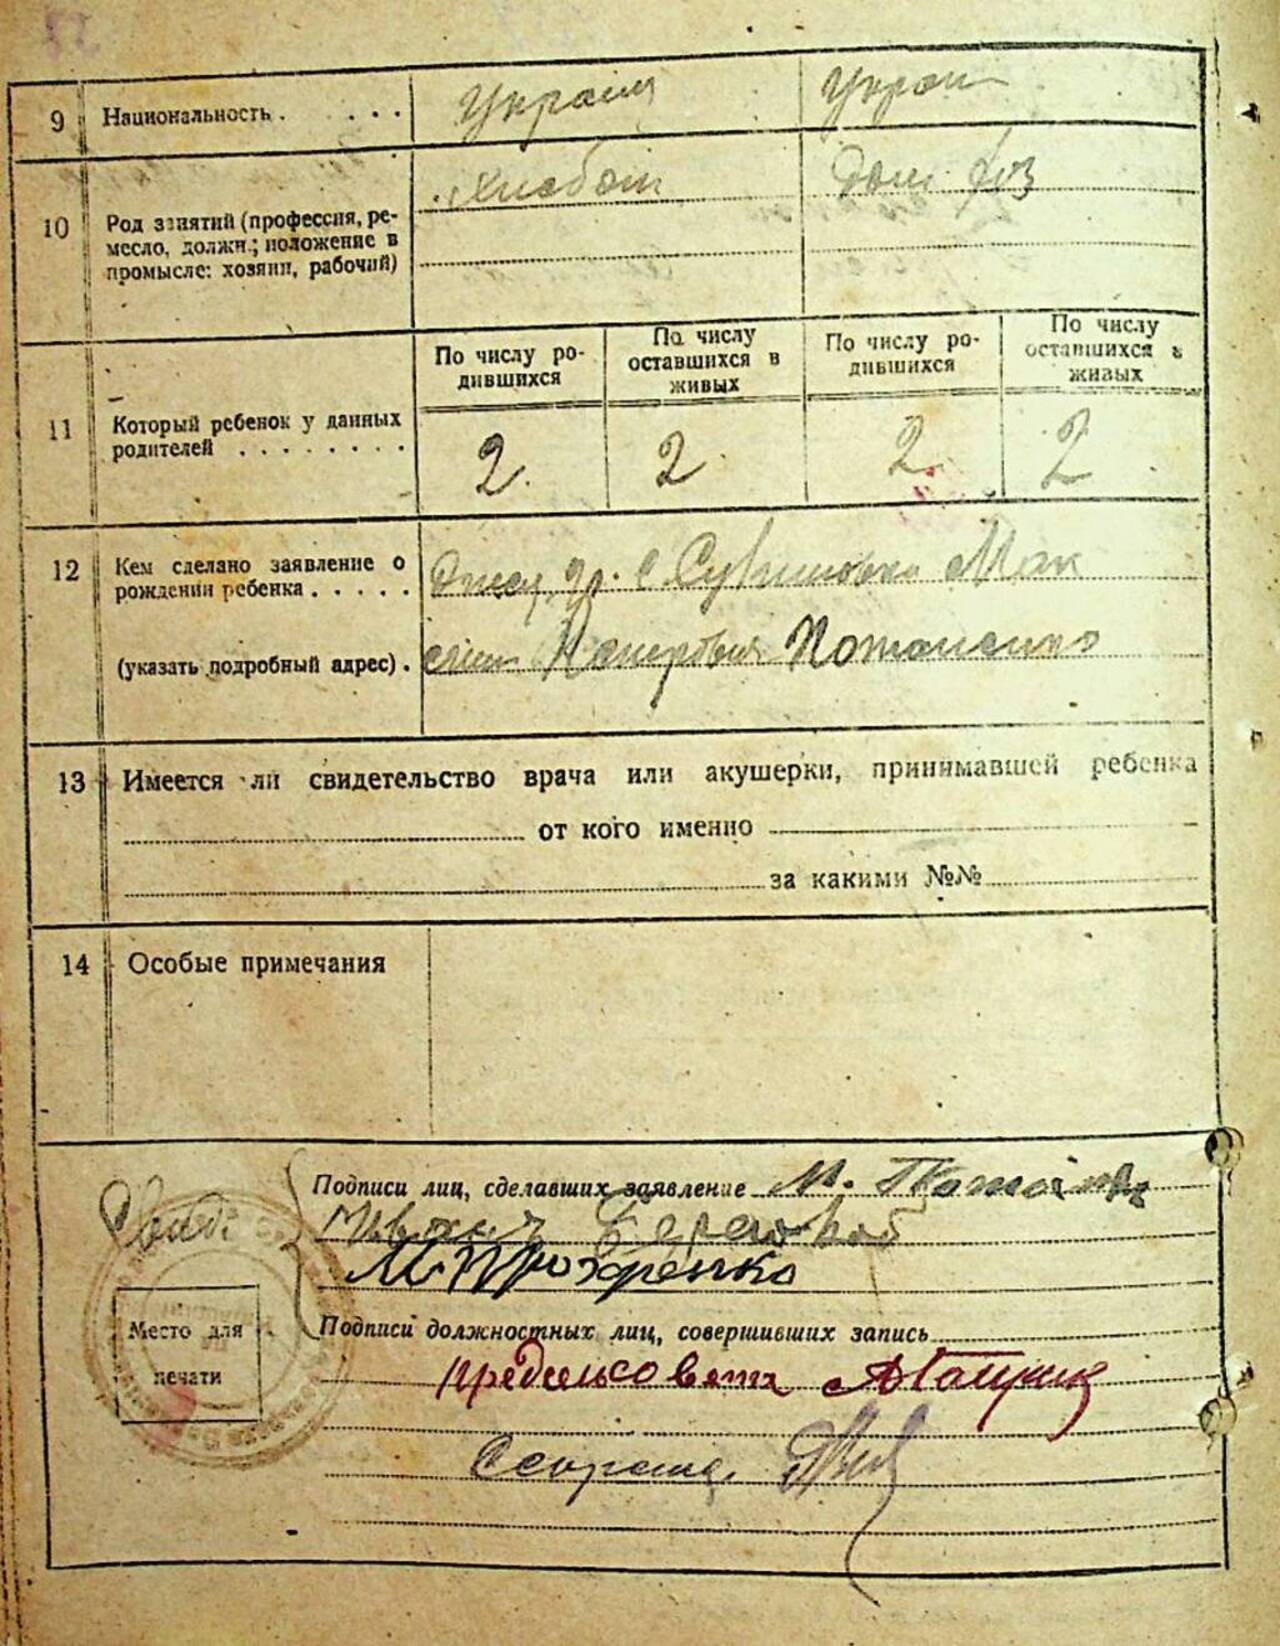 9 Национальность . . . . Украин Украин
10 Род занятий (профессия, ре-
месло, должн.; положение в
промысле: хозяин, рабочий)
хлебоп Дом хоз
По числу ро-
дившихся
По числу
оставшихся в
живых
По числу ро-
дившихся
По числу
оставшихся в
живых
11 Который ребенок у данных
родителей . . . . . . . .
2. 2. 2. 2
12 Кем сделано заявление о
рождении ребенка . . . . .
(указать подробный адрес) .
гр. с Мак
Потапенко
13 Имеется ли свидетельство врача или акушерки, принимавшей ребенка
от кого именно
за какими №№
14 Особые примечания
Подписи лиц, сделавших заявление М.
Свид.
М Прохоренко
Подписи должностных лиц, совершивших запись
Место для
печати
предсельсовета
Секретар.